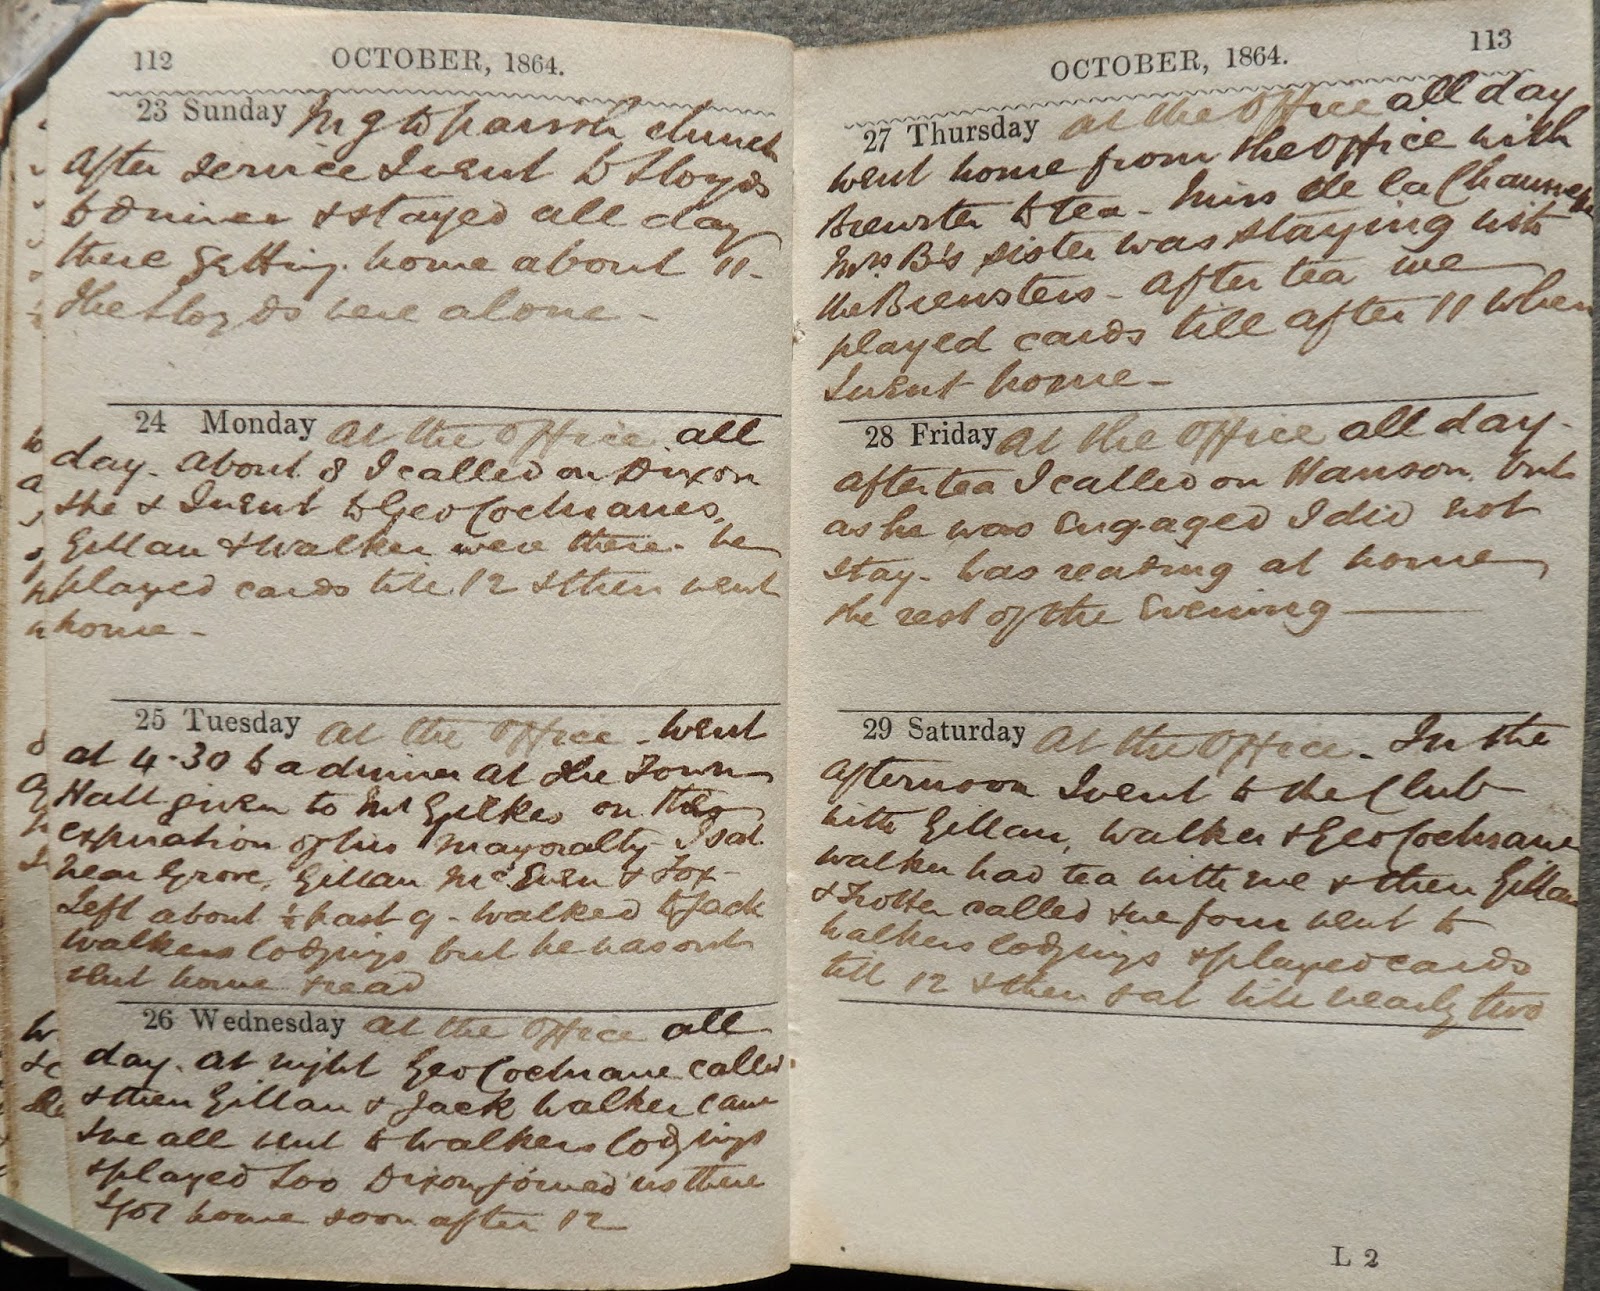 112
OCTOBER, 1864.
23 Sunday Mg to parish church
After service I went to Lloyds
to dinner & stayed all day
there getting home about 11 -
The Lloyds were alone -
24 Monday At the Office all
day. About 8 I called on Dixon
& he & I went to Geo Cochranes,
Gillan & Walker were there - we
played cards till 12 & then went
home -
25 Tuesday At the Office - Went
at 4.30 to a dinner at the Town
Hall given to Mr Gilkes on the
expiration of his Mayoralty - I sat
near Grove, Gillan McEwen & Fox -
Left about ½ past 9 - Walked to Jack
Walkers lodgings but he was out
went home & read
26 Wednesday At the Office all
day. At night Geo Cochrane called
& then Gillan & Jack Walker came
& we all went to Walkers lodgings
& played Loo Dixon joined us there
I got home soon after 12
113
OCTOBER, 1864.
27 Thursday At the Office all day
Went home from the Office with
Brewster to tea - Miss de la
Mrs B's sister was staying with
the Brewsters - After tea we
played cards till after 11 when
I went home -
28 Friday At the Office all day -
After tea I called on Hanson but
as he was engaged I did not
stay - Was reading at home
the rest of the Evening
29 Saturday At the Office - In the
afternoon I went to the Club
with Gillan, Walker & Geo Cochrane
Walker had tea with me & then Gillan
& Trotter called & we four went to
Walkers lodgings & played cards
till 12 & then sat till nearly two
L 2